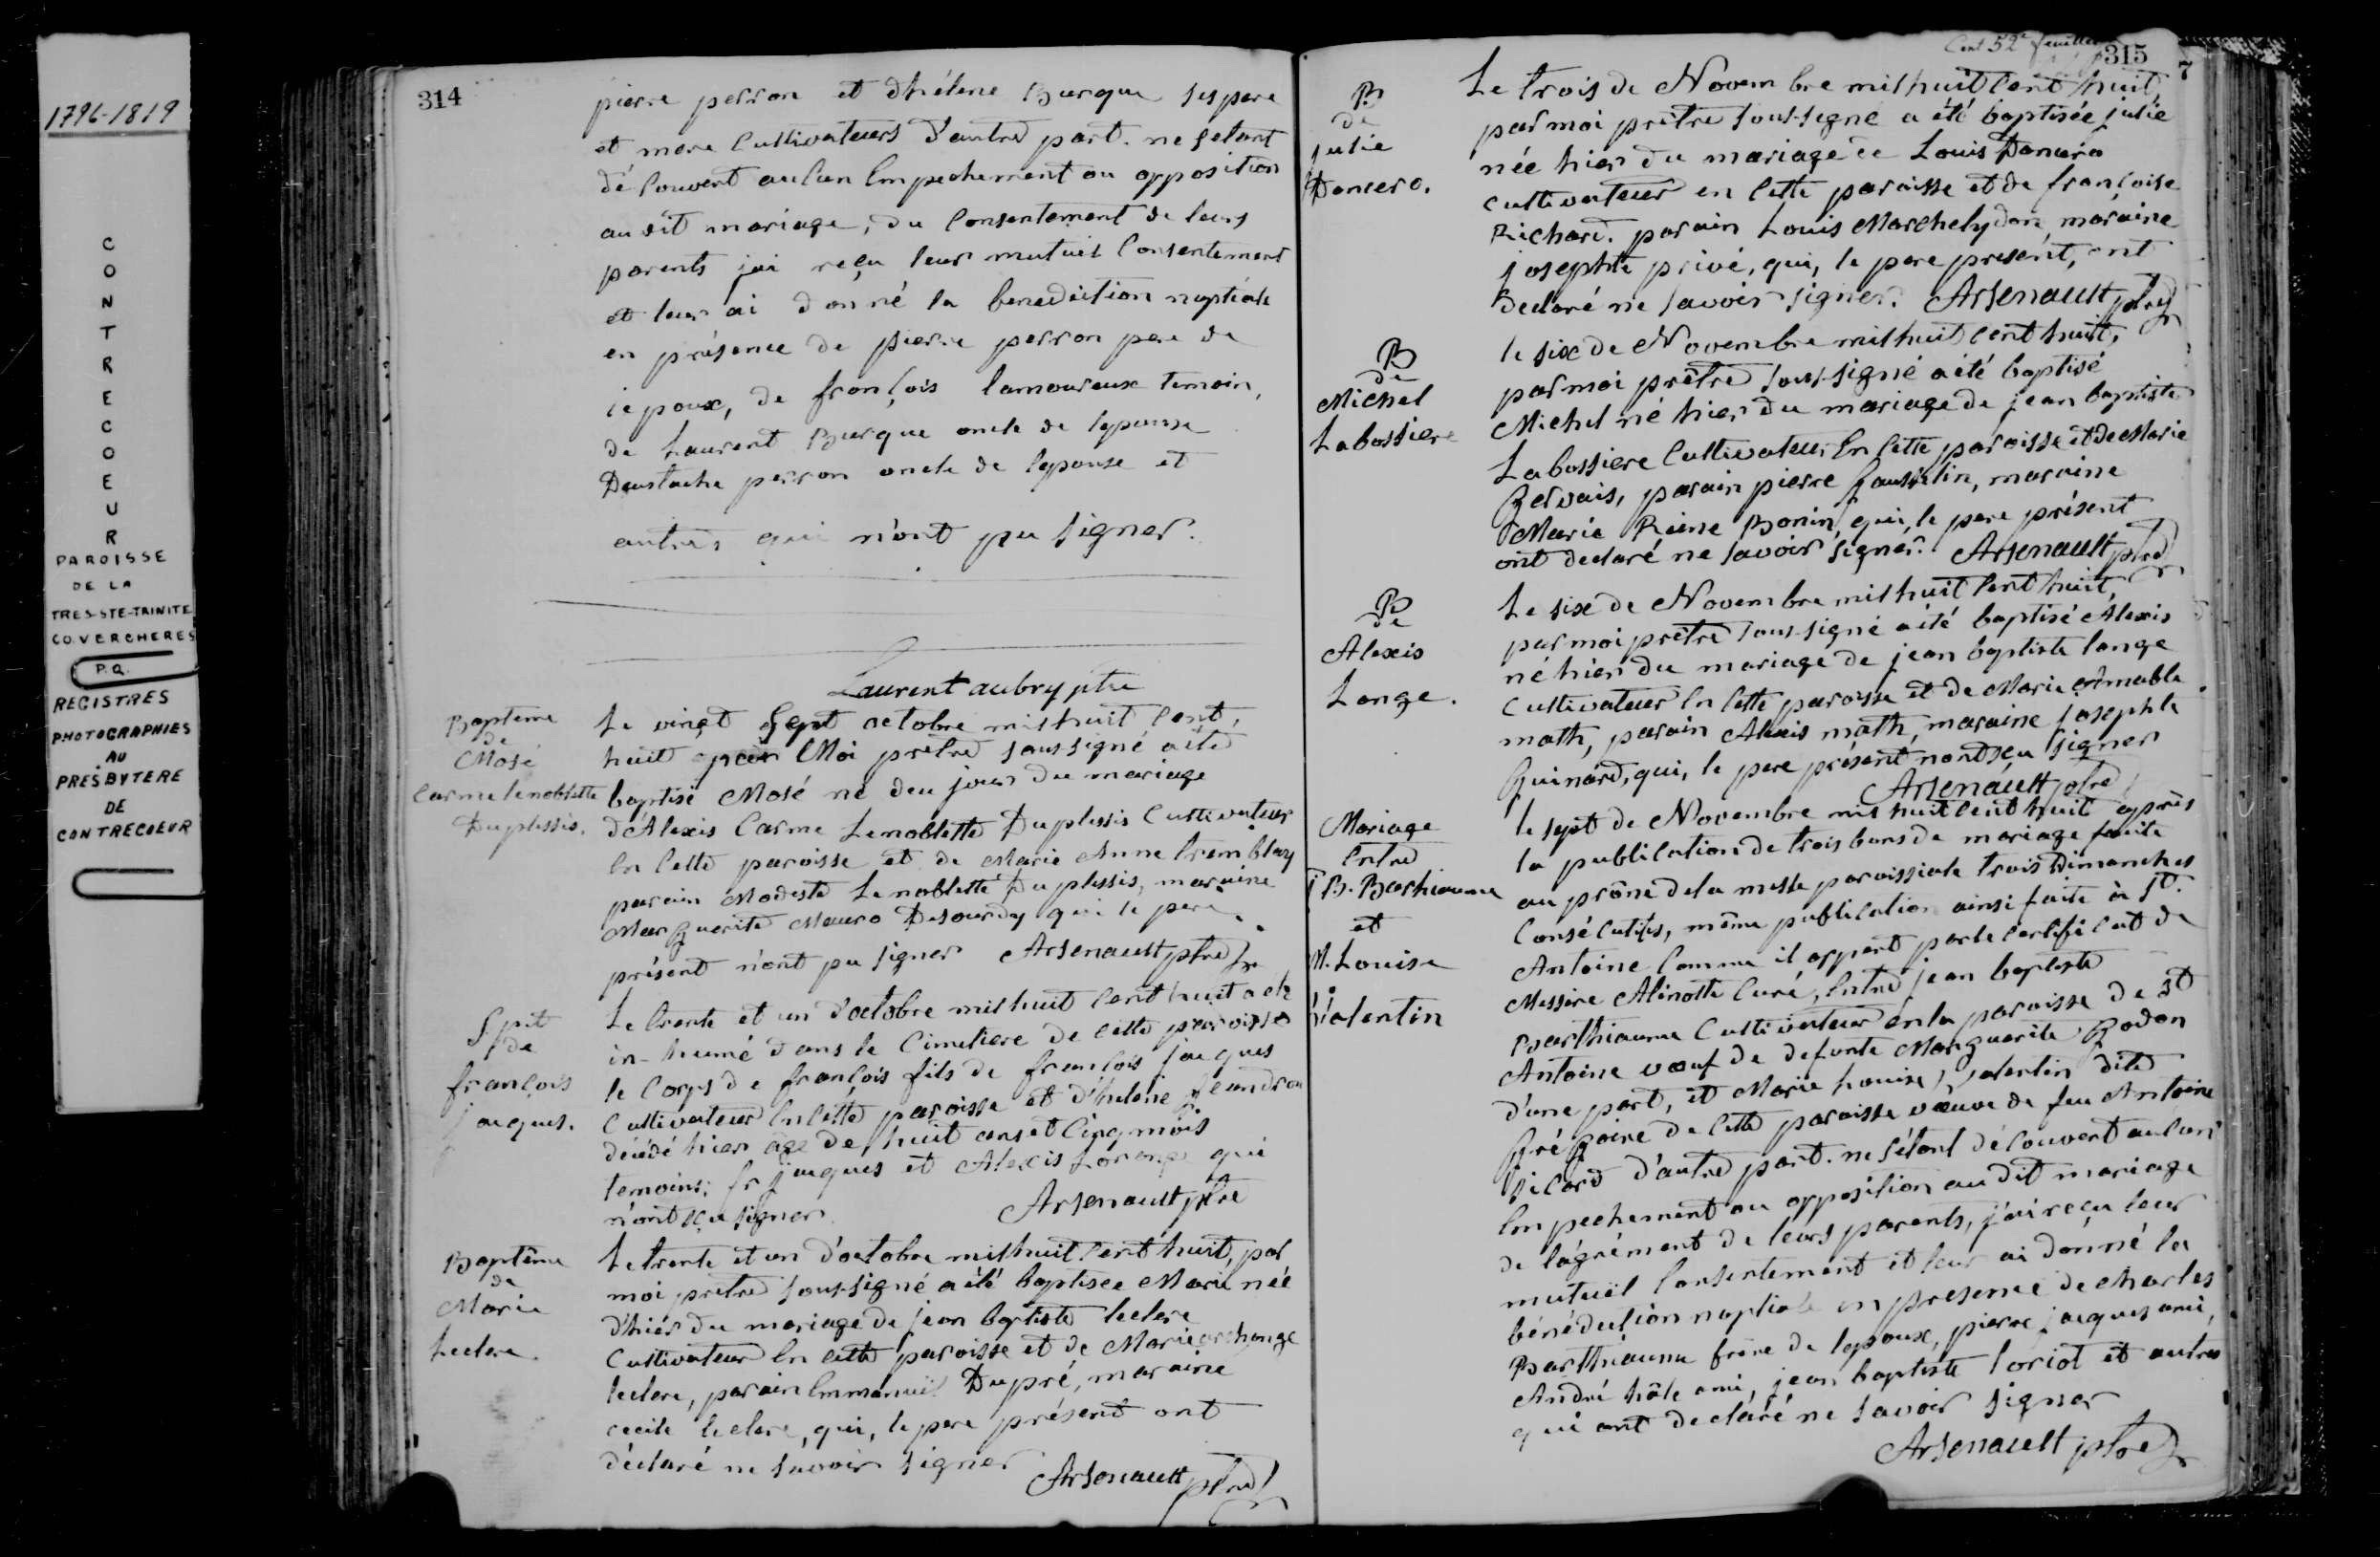 1796-1819
CONTRECOEUR
PAROISSE
DE LA
TRES-STE-TRINITE
CO. VERCHERES
P.Q.
REGISTRES
PHOTOGRAPHIES
AU
PRESBYTERE
DE
CONTRECOEUR
314
pierre perron et d'hélène Burque ses pere
et mere Cultivateurs d'autre part. ne setant
découvert aucun Empechement ou opposition
au dit mariage, du Consentement de leurs
parents jai reçu leur mutuel Consentement
et leur ai donné la benediction nuptiale
en présence de pierre perron pere de
lepoux, de françois lamoureux temoin,
de Laurent Burque oncle de lepouse
Deustache perron oncle de lepouse et
autres qui n'ont pu signer.
Laurent aubry ptre
Baptème
de
Mosé
Carme lenoblette
Duplessis.
Le vingt Sept octobre mil huit Cent,
huit par Moi prêtre sous signé a été
baptisé Mosé né deu jour du mariage
d'Alexis Carme Lenoblette Duplessis Cultivateur
En Cette paroisse et de Marie Anne tremblay
parain Modeste Lenoblette Duplessis, maraine
Marguerite Mauro Desourdy qui le pere
présent n'ont pu signer Arsenault ptre
Spt
de
françois
jaques.
Le trente et un d'octobre mil huit Cent huit a été
in-humé dans le Cimetiere de Cette paroisse
le Corps de françois fils de françois jacques
Cultivateur En Cette paroisse et d'helene jeandron
décédé hier age de huit ans et Cinq mois
temoins; fr jacques et Alexis qui
n'ont sçu signer Arsenault ptre
Baptême
de
Marie
Leclere
Le trente et un d'octobre mil huit Cent huit, par
moi prêtre sous-signé a été baptisée Marie née
d'hier du mariage de jean baptiste leclere
Cultivateur En Cette paroisse et de Marie archange
leclere, parain Emmanuel Dupré, maraine
cecile leclere, qui, le pere présent ont
déclaré ne savoir signer
Arsenault ptre
Cent 52e feuillet
315
7
B
de
julie
Dancero.
Le trois de Novembre mil huit Cent huit,
par moi prêtre sous-signé a été baptisée julie
née hier du mariage de Louis Dancero
cultivateur en Cette paroisse et de françoise
Richard. parain Louis Marchelydon, maraine
josephte privé, qui, le pere present, ont
declaré ne savoir signer. Arsenault ptre
B
de
Michel
Labossiere
le six de Novembre mil huit Cent huit,
par moi prêtre sous-signé a été baptisé
Michel né hier du mariage de jean baptiste
Labossiere Cultivateur En Cette paroisse et de Marie
Gervais, parain pierre Gausselin, maraine
Marie Reine Bonin, qui, le pere présent
ont declaré ne savoir signer. Arsenault ptre
B
de
Alexis
Lange.
Le six de Novembre mil huit Cent huit,
par moi prêtre sous-signé a été baptisé Alexis
né hier du mariage de jean baptiste lange
Cultivateur En Cette paroisse et de Marie aimable
math, parain Alexis math, maraine josephte
Guinard, qui, le pere présent n'ont sçu signer
Arsenault ptre
Mariage
Entre
J B. Barthiaume
et
M. Louise
Valentin
le sept de Novembre mil huit Cent huit après
la publication de trois bans de mariage faite
au prône de la messe paroissiale trois Dimanches
Consécutifs, même publication ainsi faite à St.
Antoine Comme il appert par le certificat de
Messire Alinotte Curé, Entre jean baptiste
Barthiaume Cultivateur en la paroisse de St
Antoine veuf de defunte Marguerite Godon
d'une part, et Marie Louise Valentin dite
Grégoire de Cette paroisse veuve de feu Antoine
picard d'autre part. ne s'étant découvert aucun
Empechement ou opposition au dit mariage
de l'agrément de leurs parents, j'ai reçu leur
mutuel Consentement et leur ai donné la
bénédiction nuptiale en présence de Charles
Barthiaume frère de lepoux, pierre jacques ami,
André hôle ami, jean baptiste loriot et autres
qui ont declaré ne savoir signer
Arsenault ptre